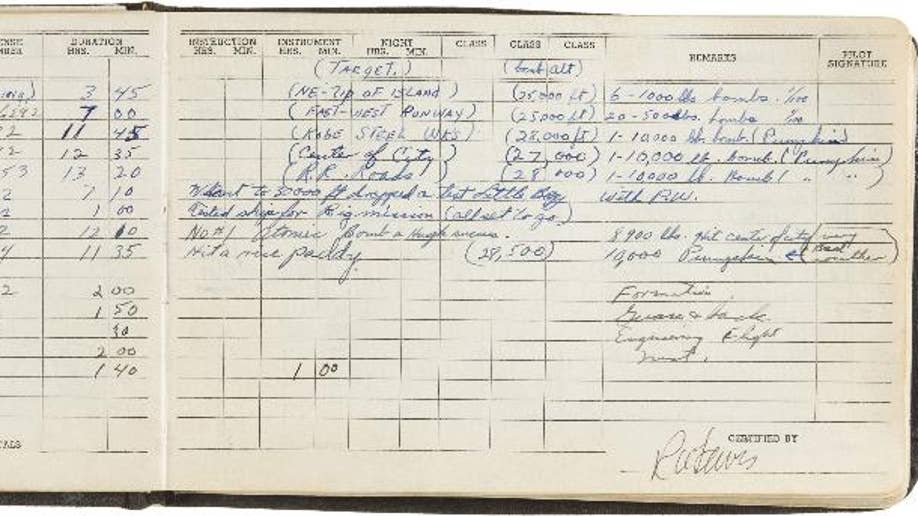 DURATION INSTRUCTION INSTRUMENT NIGHT CLASS CLASS CLASS REMARKS PILOT
HRS. MIN. HRS. MIN. HRS. MIN. HRS. MIN. SIGNATURE
(TARGET.) (bomb alt)
3 45 (NE-Tip of ISLAND) (25,000 ft) 6-1000 lbs bombs.
7 00 (EAST-WEST RUNWAY) (25,000 ft) 20-500 lbs. bombs
11 45 (KOBE STEEL WKS) (28,000 ft) 1-10,000 lb. bomb (Pumpkin)
12 35 (Center of City) (27,000) 1-10,000 lb. bomb (Pumpkin)
53 13 20 (R.R. Roads) (28,000) 1-10000 lb. Bomb ( " " )
7 10 Went to 30000 ft dropped a test Little Boy With P.W.
1 00 Tested ship for Big mission (all set to go)
12 10 No #1 Atomic Bomb a Hugh success. 8900 lbs. Hit center of city
11 35 Hit a rice paddy (28,500) 10,000 Pumpkin (Bad weather)
2 2 00 Formation
1 50
30 Engineering Flight
2 00
1 40 1 00
CERTIFIED BY
RA Lewis